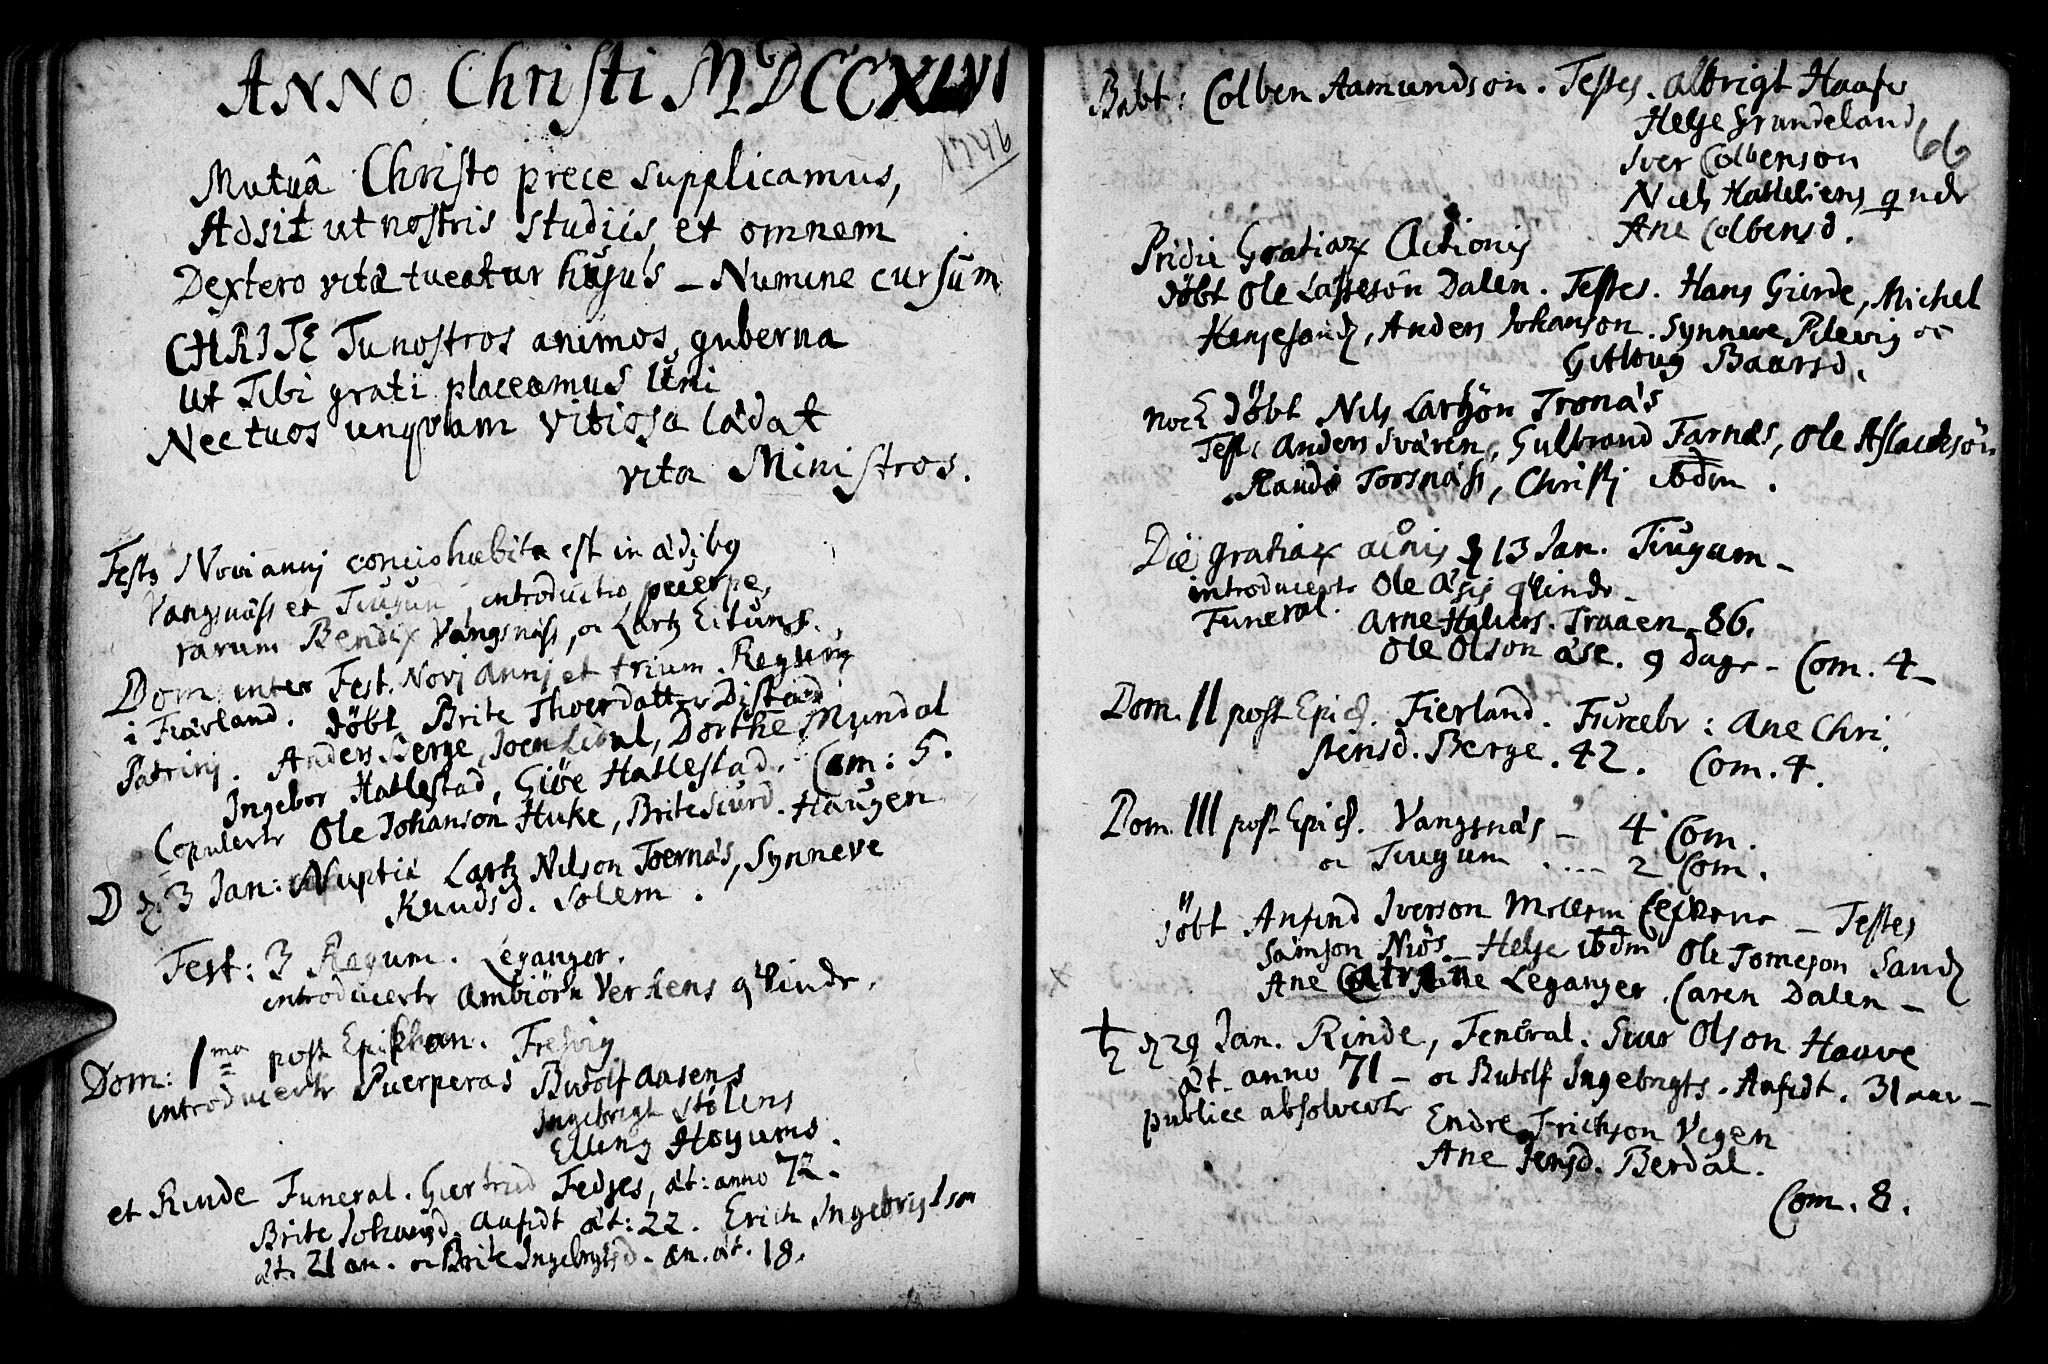 ANNO Christi MDCCXLVI
1746
Mutuâ Christo prece supplicamus,
Adsit ut nostris studiis et omnem
Dextero vitæ tueatur hujus – Numine cursum
CHRISTE Tu nostros animos guberna
Ut Tibi grati placeamus Uni
Nec tuos unqvam vitiosa lædat
vita Ministros.
Festo Novi annj concio habita est in ædibq
Vangsnæss et Tiugum, introductio puerpe,
rarum Bendix Vangsnæss, oc Lartz Eituns.
Dom: inter Fest. Novj Annj et trium Regum
i Fiærland. döbt Brite Thoerdatter Distad
Patrinj. Anders Berge, Joen Lidal, Dorthe Mundal
Ingebor Hatlestad, Giöe Hatlestad. Com: 5.
Copulertr Ole Johanson Huke, Brite Siurd. Haugen
D 3 Jan: Nuptiæ Lartz Nilson Toernæs, Synneve
Knudsd. Solem.
Fest: 3 Regum. Leganger.
introducertr Ambiörn Verkens qvinde.
Dom: 1ma post Epiphan. Fresvig
introducertr Puerperas Butolf Aasens
Ingebrigt Stölens
Elling Hoyums.
et Rinde Funeral. Giertrud Fedjes, æt: anno 72.
Brite Johansd. Aufidt æt: 22. Erich Ingebrigtson
æt. 21 an. oc Brite Ingebrigtsd. an. æt. 18.
66
Babt: Colben Aamundson. Testes. Albrigt Haafe
Helge Grundeland
Iver Colbenson
Niels Hatleliens qude
Ane Colbensd.
Pridie Gratiar Actionis
döbt Ole Lasseson Dalen. Testes. Hans Gierde, Michel
Henjesand, Anders Johanson. Synneve Pilevig oc
Gutloug Baarsd.
noch döbt Nils Lartzön Tronæs
Test: Anders Sværen, Gulbrand Farnæs, Ole Aslackson
Randi Toosnæss, Christj ibdm.
Die gratiar actnis 13 Jan. Tiugum –
introducertr Ole Åsis qvinde –
Funeral. Arne Halvers. Traaen – 86.
Ole Olson åse. 9 dage – Com. 4 –
Dom. II post Epiph. Fierland. Funebr: Ane Chri,
stensd. Berge. 42. Com. 4.
Dom. III post Epiph. Vangsnæs – 4 Com.
oc Tiugum .... 2 Com.
döbt Anfind Iverson – Testes
Samson Niøs – Helge ibdm Ole Tomeson Sand
Ane Catrine Leganger. Caren Dalen –
29 Jan. Rinde, Feneral. Siur Olson Hauve
æt. anno 71 – oc Butolf Ingebrigts. Anfidt. 31 aar –
publice absolvertr Endre Frichson Vegen
Ane Jensd. Berdal.
Com. 8.